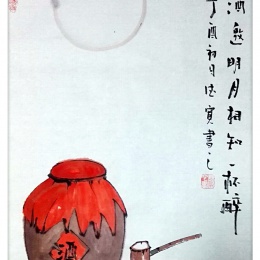 酒邀明月相知一杯醉
丁酉初月德寅書之
酒